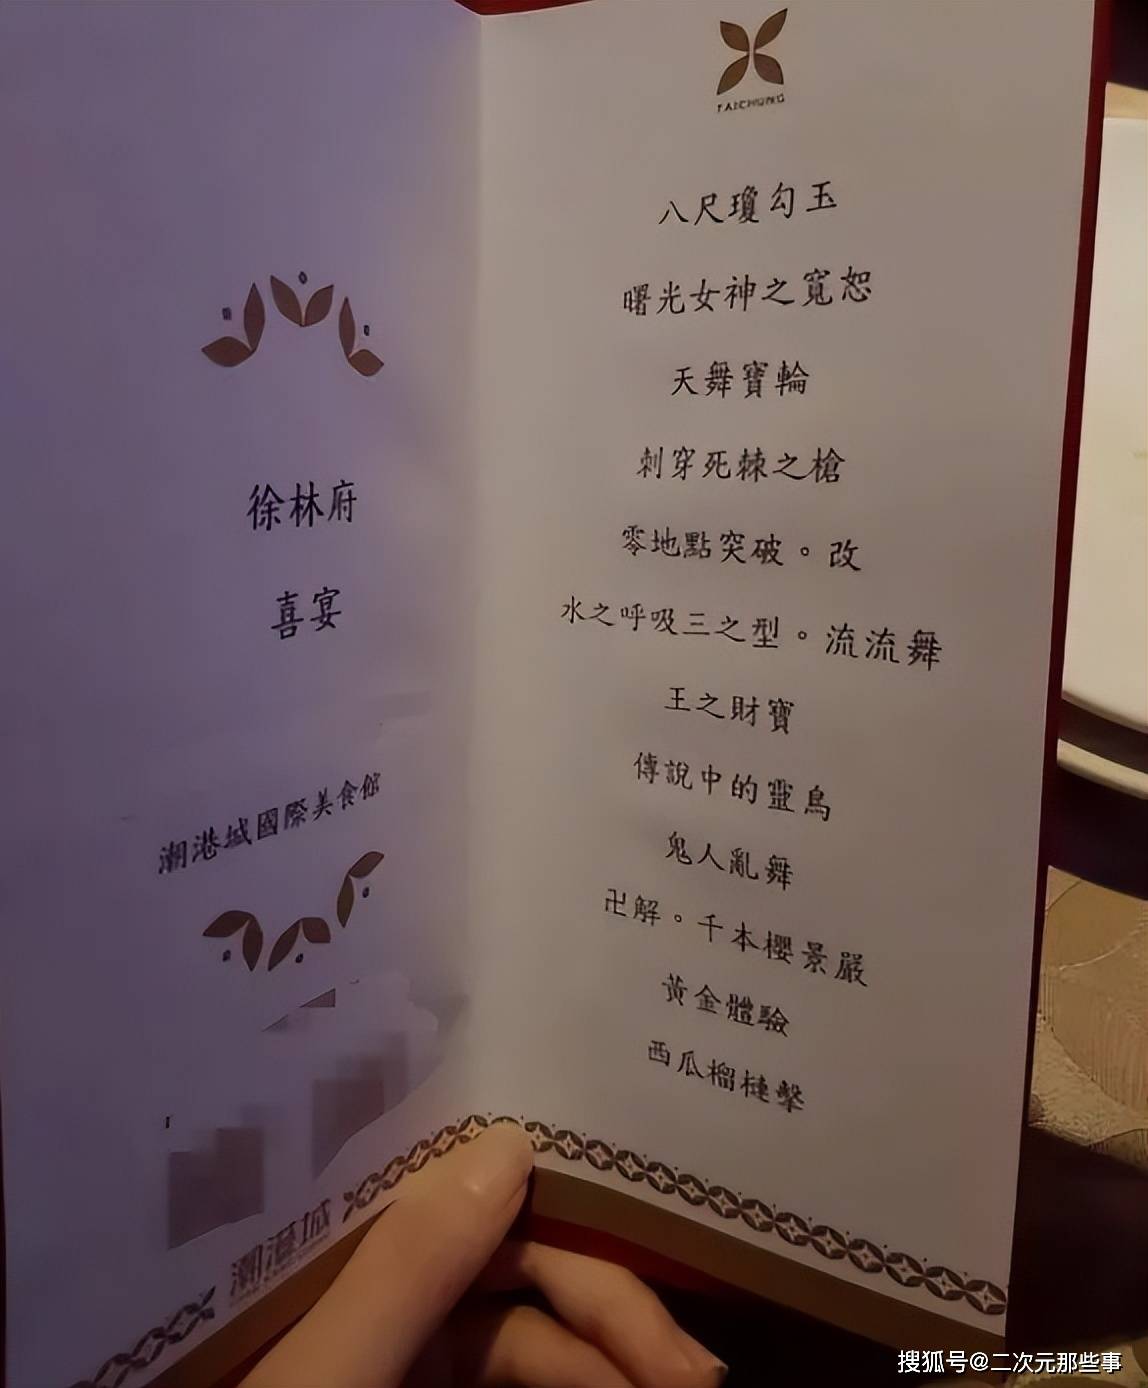 徐林府
喜宴
潮港城國際美食館
潮港城
TAICHUNG
八尺瓊勾玉
曙光女神之寬恕
天舞寶輪
刺穿死棘之槍
零地點突破。改
水之呼吸三之型。流流舞
王之財寶
傳說中的靈鳥
鬼人亂舞
卍解。千本櫻景嚴
黃金體驗
西瓜榴槤擊
搜狐号@二次元那些事